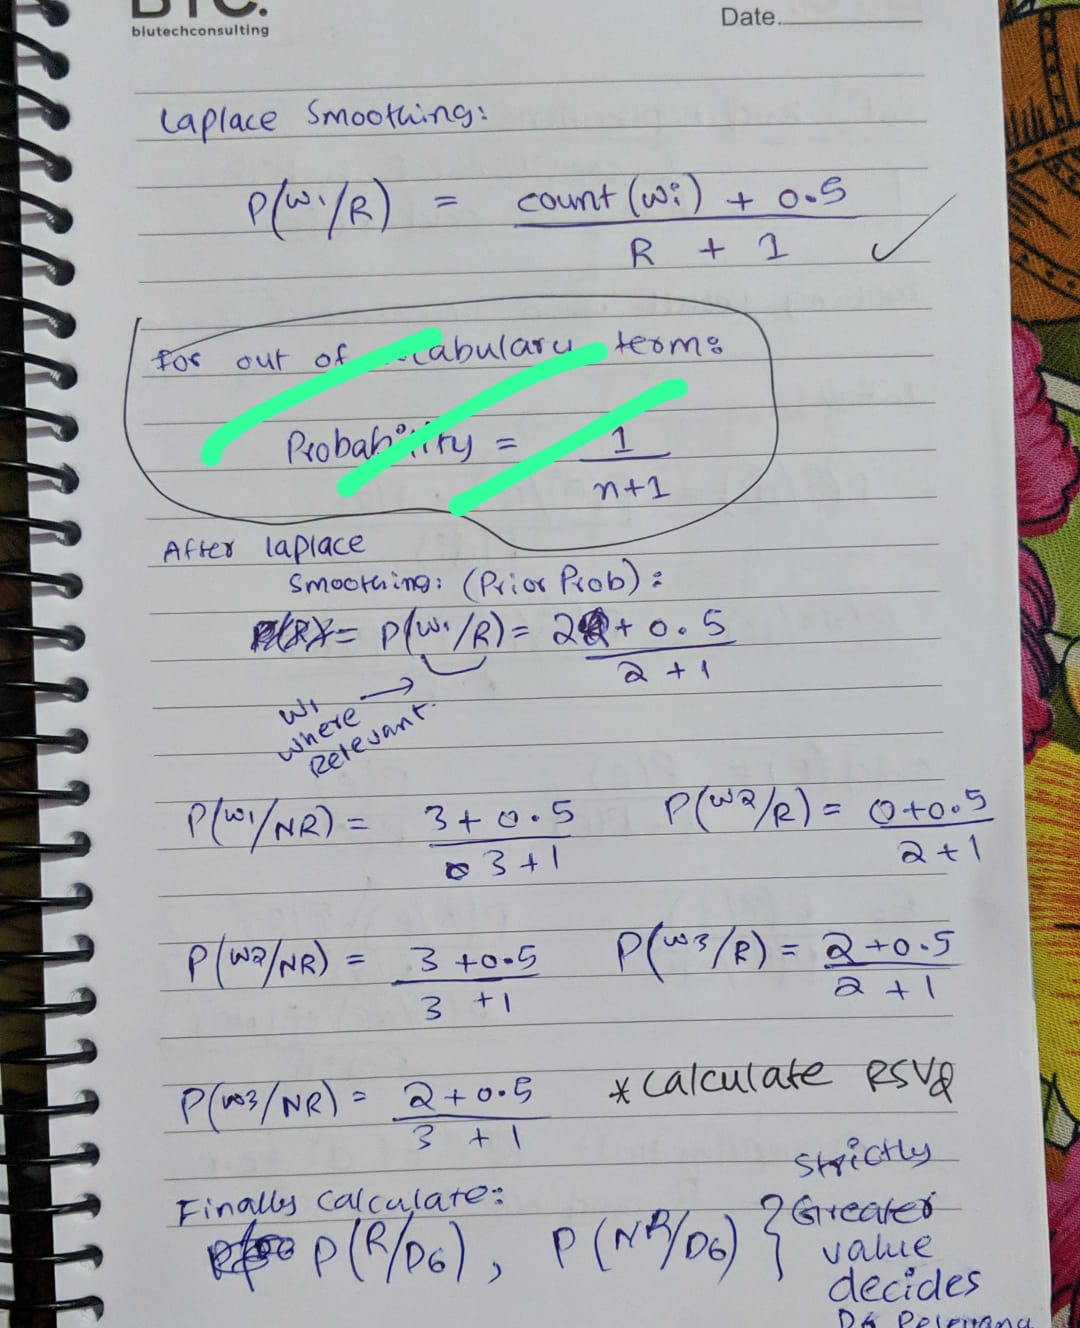 BTC.
blutechconsulting
Date.
Laplace Smoothing:
P(w1/R) = count (wi) + 0.5
R + 1
For out of vocabulary term:
Probability = 1
n+1
After laplace
Smoothing: (Prior Prob):
= P(w1/R) = 2 + 0.5
2 + 1
w1
where
Relevant.
P(w1/NR) = 3 + 0.5
3 + 1
P(w2/R) = 0+0.5
2 + 1
P(w2/NR) = 3 +0.5
3 +1
P(w3/R) = 2 +0.5
2 + 1
P(w3/NR) = 2 + 0.5
3 + 1
* Calculate RSVQ
Finally Calculate:
P(R/D6), P(NR/D6) }
Strictly
Greater
value
decides
D6